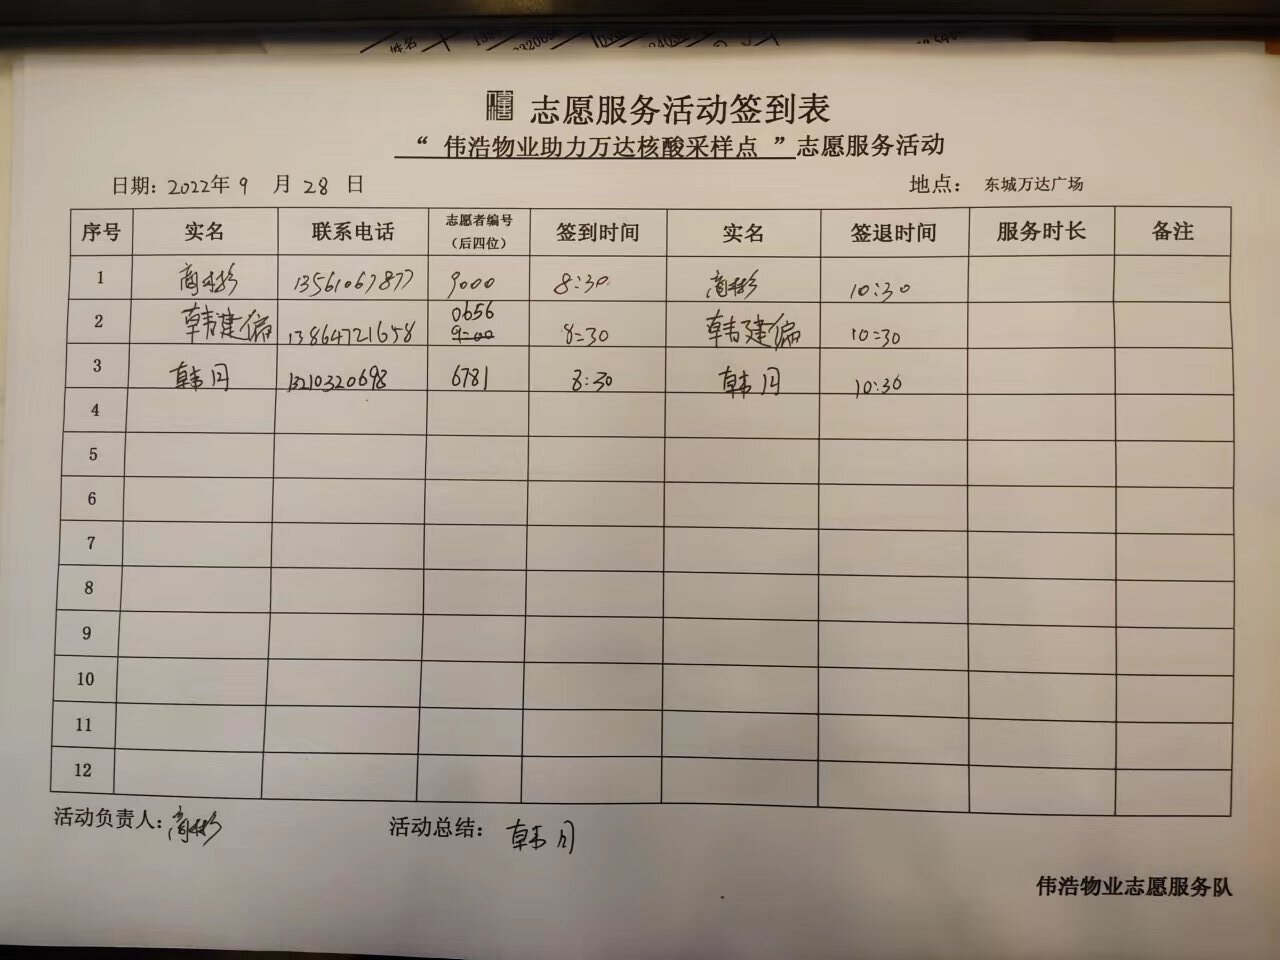 志愿服务活动签到表
“ 伟浩物业助力万达核酸采样点 ”志愿服务活动
日期：2022年 9 月 28 日 地点： 东城万达广场
序号 实名 联系电话 志愿者编号（后四位） 签到时间 实名 签退时间 服务时长 备注
1 商彬 13561067877 9000 8:30 商彬 10:30
0656
2 韩建偏 13864721658 9:00 8:30 韩建偏 10:30
3 韩月 13210320698 6781 8:30 韩月 10:30
4
5
6
7
8
9
10
11
12
活动负责人：商彬 活动总结： 韩月
伟浩物业志愿服务队